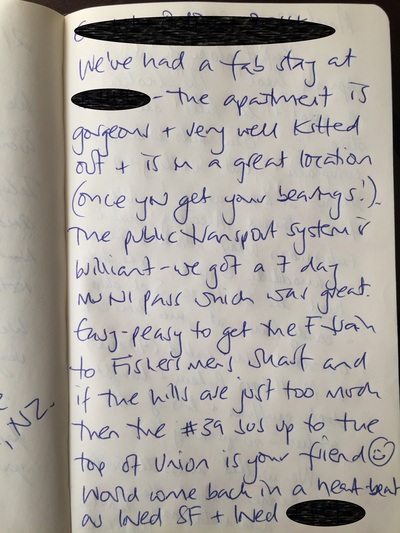 we've had a fab stay at
- the apartment is
gorgeous + very well kitted
out + is in a great location
(once you get your bearings!).
The public transport system is
brilliant - we got a 7 day
MUNI pass which was great.
Easy-peasy to get the F-train
to Fishermens Wharf and
if the hills are just too much
then the #39 bus up to the
top of Union is your friend ☺
Would come back in a heart beat
as loved SF + loved
, NZ.